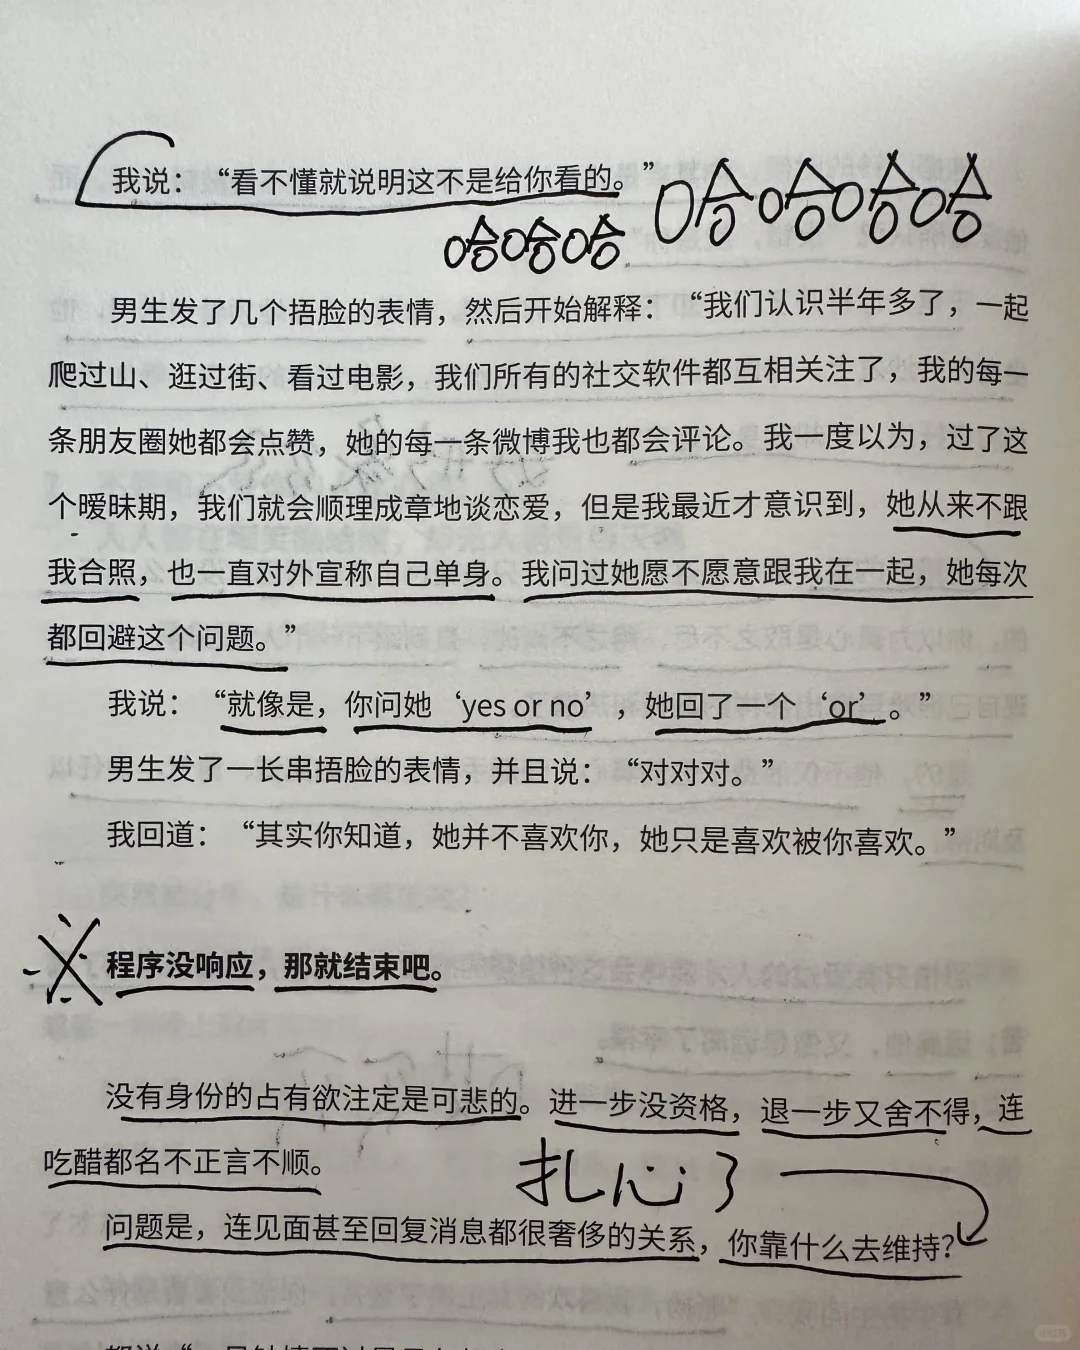 我说：“看不懂就说明这不是给你看的。”
哈哈哈哈
哈哈哈
男生发了几个捂脸的表情，然后开始解释：“我们认识半年多了，一起
爬过山、逛过街、看过电影，我们所有的社交软件都互相关注了，我的每一
条朋友圈她都会点赞，她的每一条微博我也都会评论。我一度以为，过了这
个暧昧期，我们就会顺理成章地谈恋爱，但是我最近才意识到，她从来不跟
我合照，也一直对外宣称自己单身。我问过她愿不愿意跟我在一起，她每次
都回避这个问题。”
我说：“就像是，你问她‘yes or no’，她回了一个‘or’。”
男生发了一长串捂脸的表情，并且说：“对对对。”
我回道：“其实你知道，她并不喜欢你，她只是喜欢被你喜欢。”
程序没响应，那就结束吧。
没有身份的占有欲注定是可悲的。进一步没资格，退一步又舍不得，连
吃醋都名不正言不顺。
扎心了
问题是，连见面甚至回复消息都很奢侈的关系，你靠什么去维持？